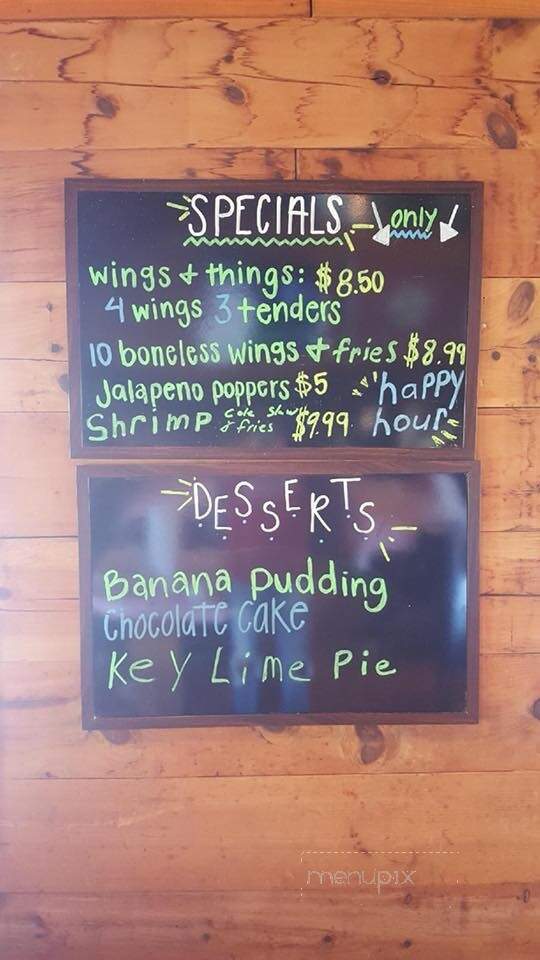 SPECIALS only
wings + things: $8.50
4 wings 3 tenders
10 boneless wings + fries $8.99
Jalapeno poppers $5 happy
Shrimp Cole Slaw $9.99 hour
& fries
DESSERTS
Banana Pudding
Chocolate Cake
Key Lime Pie
menupix